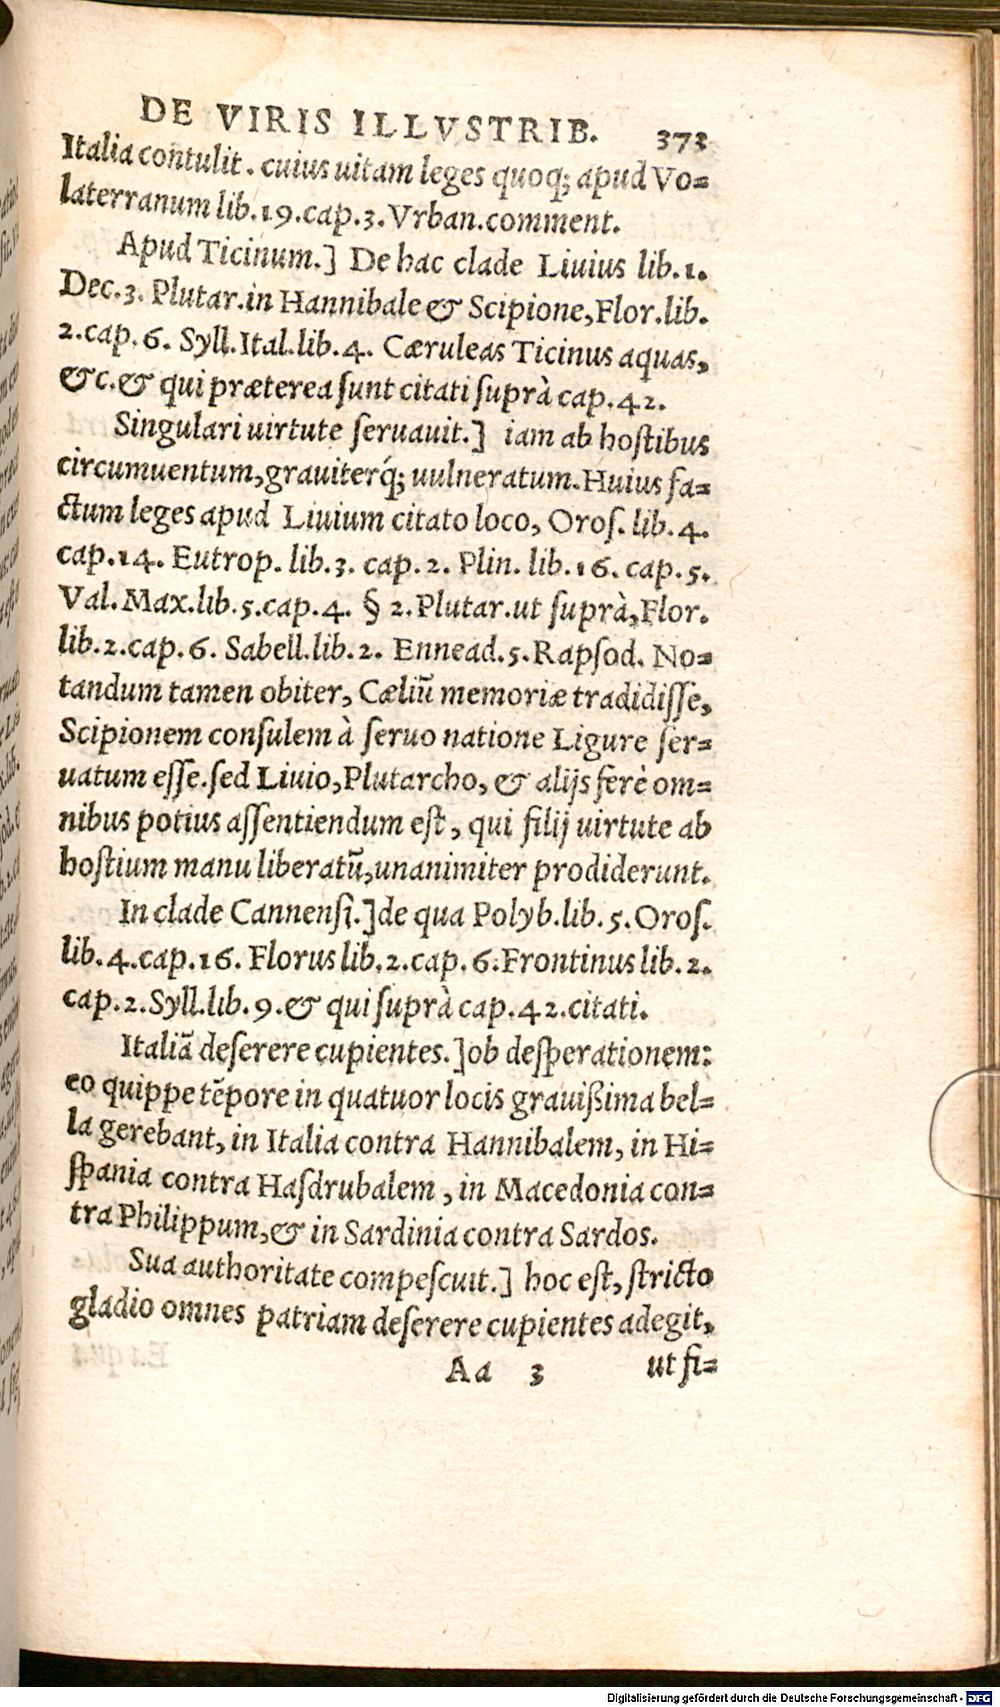 DE VIRIS ILLVSTRIB. 373
Italia contulit. cuius uitam leges quoq; apud Vo=
laterranum lib.19.cap.3.Vrban.comment.
Apud Ticinum.] De hac clade Liuius lib.1.
Dec.3. Plutar.in Hannibale & Scipione,Flor.lib.
2.cap.6. Syll.Ital.lib.4. Cæruleas Ticinus aquas,
&c.& qui præterea ſunt citati ſuprà cap.42.
Singulari uirtute ſeruauit.] iam ab hoſtibus
circumuentum,grauiterq́; uulneratum.Huius fa=
ctum leges apud Liuium citato loco, Oroſ. lib.4.
cap.14. Eutrop. lib.3. cap.2. Plin. lib.16. cap.5.
Val.Max.lib.5.cap.4. § 2.Plutar.ut ſuprà,Flor.
lib.2.cap.6. Sabell.lib.2. Ennead.5.Rapſod. No=
tandum tamen obiter, Cæliũ memoriæ tradidiſſe,
Scipionem conſulem à ſeruo natione Ligure ſer=
uatum eſſe.ſed Liuio,Plutarcho, & alijs ferè om=
nibus potius aſſentiendum eſt, qui filij uirtute ab
hoſtium manu liberatũ,unanimiter prodiderunt.
In clade Cannenſi.]de qua Polyb.lib.5.Oroſ.
lib.4.cap.16. Florus lib.2.cap.6.Frontinus lib.2.
cap.2.Syll.lib.9.& qui ſuprà cap.42.citati.
Italiã deſerere cupientes.]ob deſperationem:
eo quippe tẽpore in quatuor locis grauißima bel=
la gerebant, in Italia contra Hannibalem, in Hi=
ſpania contra Haſdrubalem, in Macedonia con=
tra Philippum,& in Sardinia contra Sardos.
Sua authoritate compeſcuit.] hoc eſt, ſtricto
gladio omnes patriam deſerere cupientes adegit,
Aa 3 ut ſi=
Digitalisierung gefördert durch die Deutsche Forschungsgemeinschaft - DFG